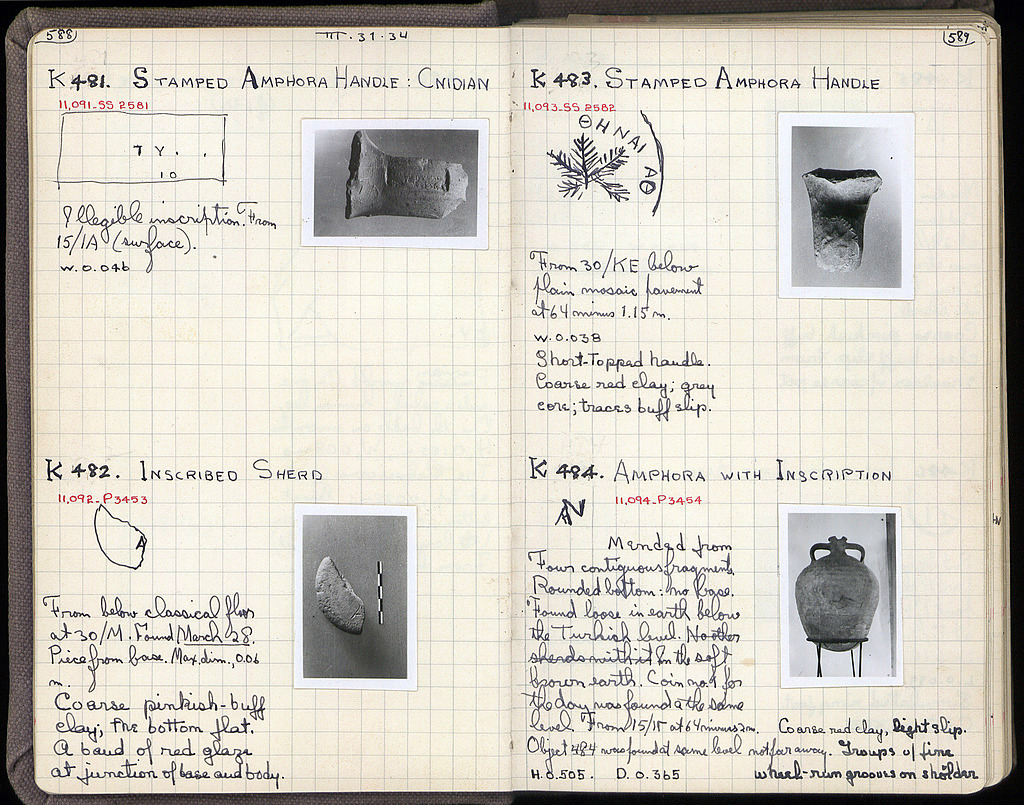 588
III.31.34
K 481. STAMPED AMPHORA HANDLE: CNIDIAN
11,091-SS 2581
TY. .
10
Illegible inscription. From
15/IA (surface).
W.0.046
K 482. INSCRIBED SHERD
11,092-P3453
A
From below classical floor
at 30/M. Found March 28.
Piece from base. Max. dim., 0.06
m.
Coarse pinkish-buff
clay; the bottom flat.
A band of red glaze
at junction of base and body.
589
K 483. STAMPED AMPHORA HANDLE
11,093-SS 2582
ΘΗΝΑΙ
From 30/KE below
plain mosaic pavement
at 64 minus 1.15 m.
W.0.038
Short-Topped handle.
Coarse red clay; grey
core; traces buff slip.
K 484. AMPHORA WITH INSCRIPTION
11,094-P3454
AN
Mended from
Four contiguous fragments.
Rounded bottom: no base.
Found loose in earth below
the Turkish level. No other
sherds with it in the soft
brown earth. Coin no. 1 for
the day was found at the same
level. From 15/ at 64 minus 2m.
Coarse red clay, light slip.
Object 484 was found at same level not far away. Groups of fine
H.0.505. D.0.365
wheel-run grooves on sholder